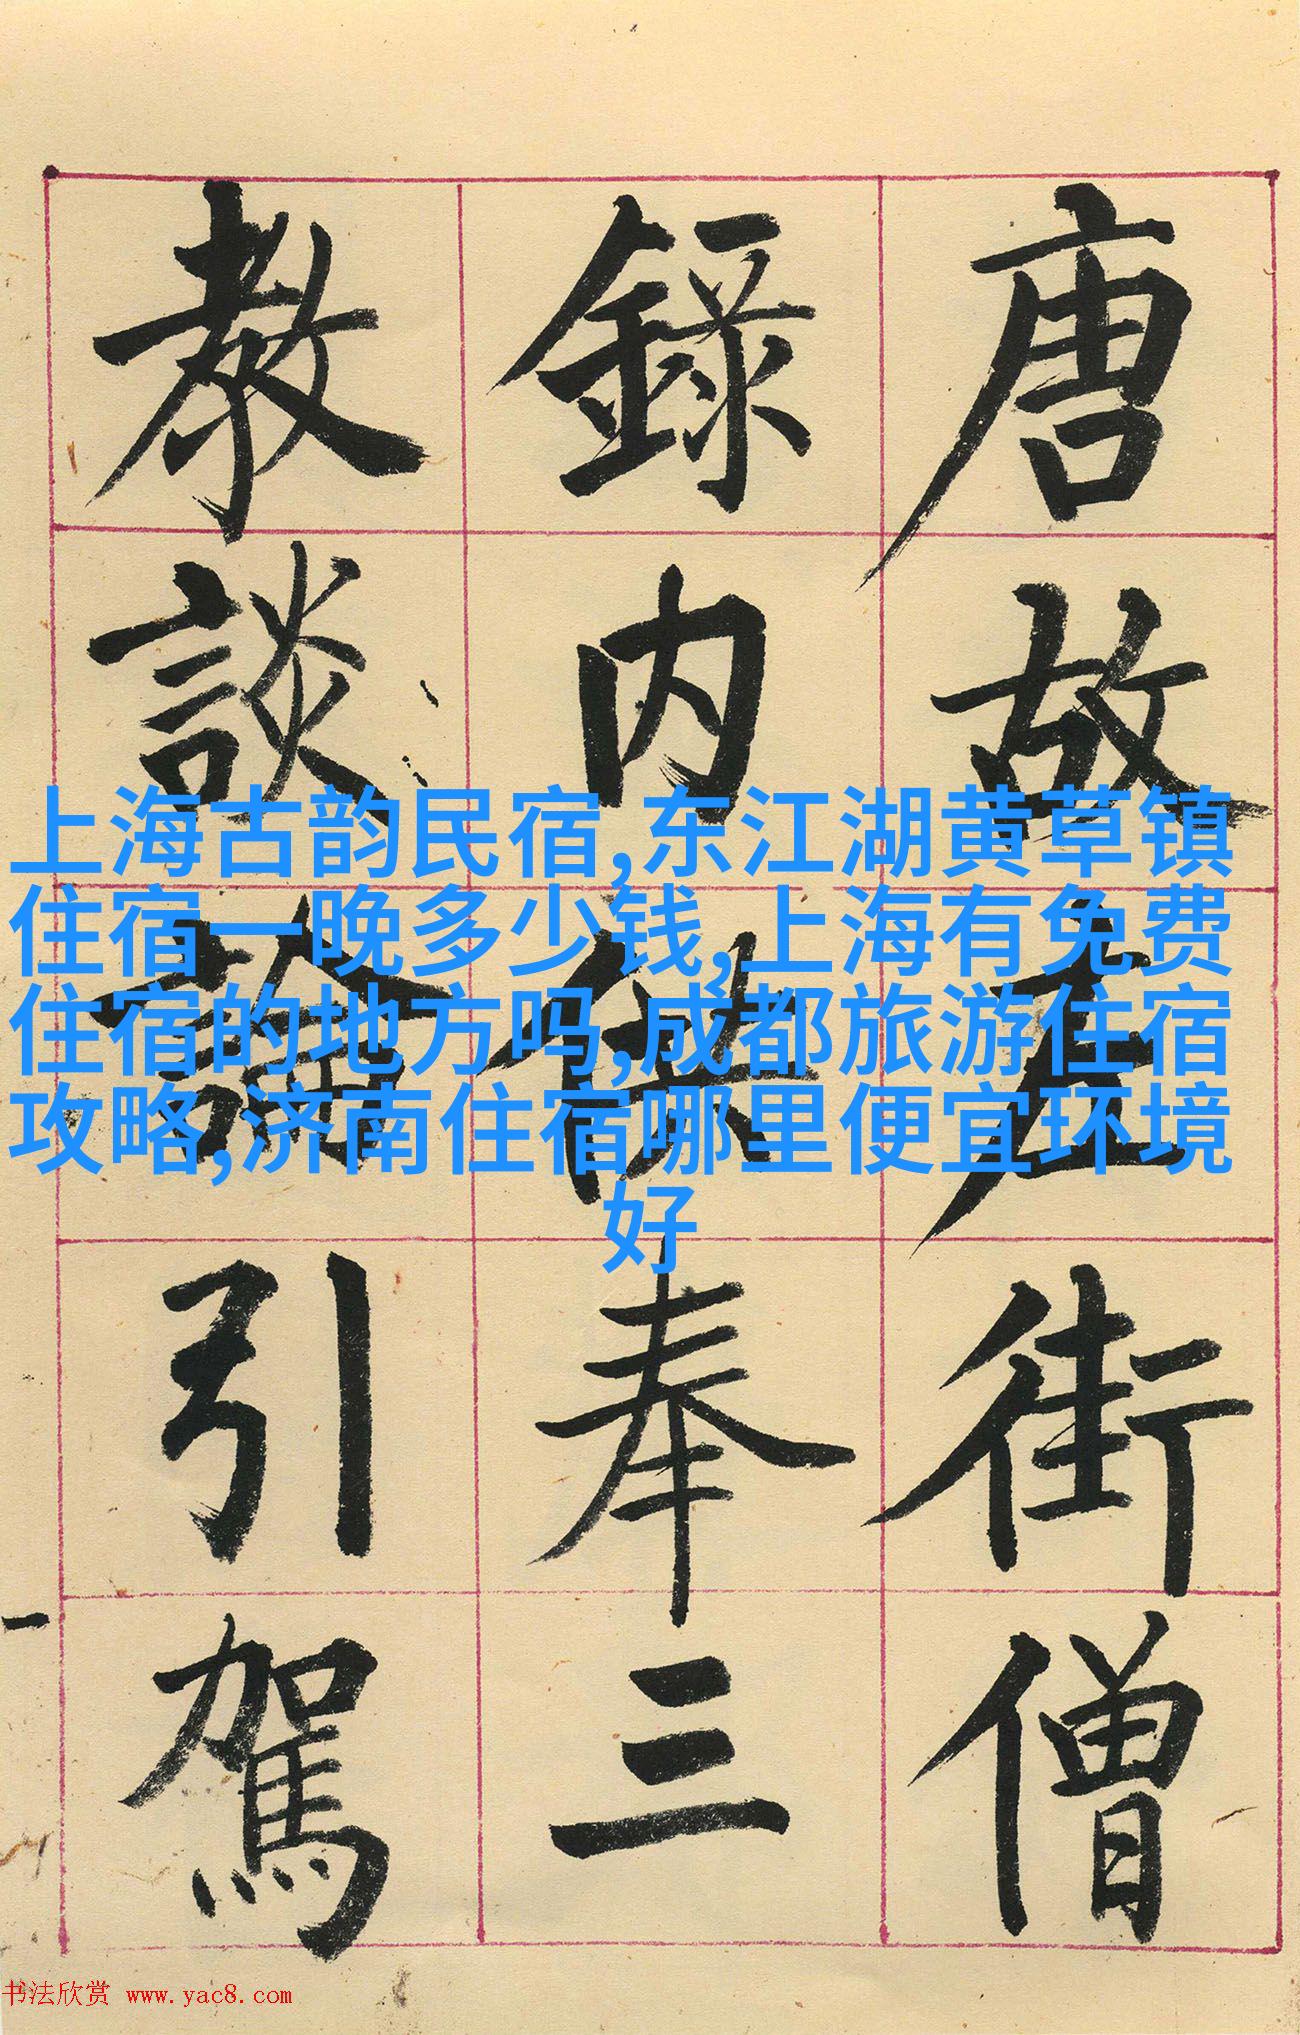 唐故左街僧
錄内供奉三
教談論引駕
上海古韵民宿,东江湖黄草镇
住宿一晚多少钱,上海有免费
住宿的地方吗,成都旅游住宿
攻略,济南住宿哪里便宜环境
好
书法欣赏 www.yac8.com